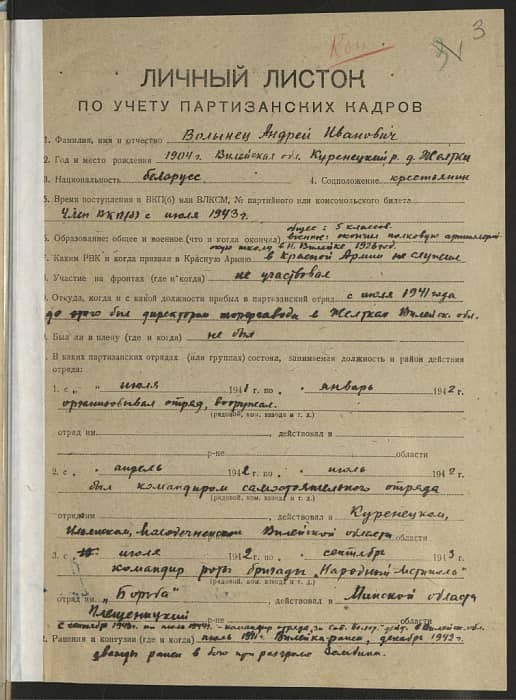 Кон.
3
ЛИЧНЫЙ ЛИСТОК
ПО УЧЕТУ ПАРТИЗАНСКИХ КАДРОВ
1. Фамилия, имя и отчество Волынец Андрей Иванович
2. Год и место рождения 1904 г. Вилейская обл. Куренецкий р. д. Жлтки
3. Национальность белорусс 4. Соцположение крестьянин
5. Время поступления в ВКП(б) или ВЛКСМ, № партийного или комсомольского билета
Член ВКП(б) с июля 1943 г.
общее: 5 классов.
6. Образование: общее и военное (что и когда окончил) военное: окончил полковую
школу в Н. Вилейке 1926 год.
7. Каким РВК и когда призван в Красную Армию в Красной Армии не служил
8. Участие на фронтах (где и когда) не участвовал
9. Откуда, когда и с какой должности прибыл в партизанский отряд с июля 1941 года
до этого был директором торфзавода в Вилейск. обл.
Был ли в плену (где и когда) не был
В каких партизанских отрядах (или группах) состоял, занимаемая должность и район действия
отряда:
1. с " " июля 1941 г. по " январь 1942 г.
организовывал отряд, вооружал.
(рядовой, ком. взвода и т. д.)
отряд им. , действовал в
р-не области
2. с " апрель 1942 г. по " июль 1942 г.
был командиром самостоятельного отряда
(рядовой, ком. взвода и т. д.)
отряд им. , действовал в Куренецком,
Ильянском, Молодечненском Вилейской области
3. с июля 1942 г. по " сентябрь 1943 г.
командир роты бригады "Народный Мститель"
(рядовой, ком. взвода и т. д.)
отряд им. "Борьба" , действовал в Минской области
Плещеницкий р-не области
с сентября 1943 г. по июль 1944 г. - командир отряда "За Сов. Бел." действ. в Вилейск. обл.
2. Ранения и контузии (где и когда) июль 1941 г. Вилейка ранен, декабрь 1942 г.
дважды ранен в бою при разгроме